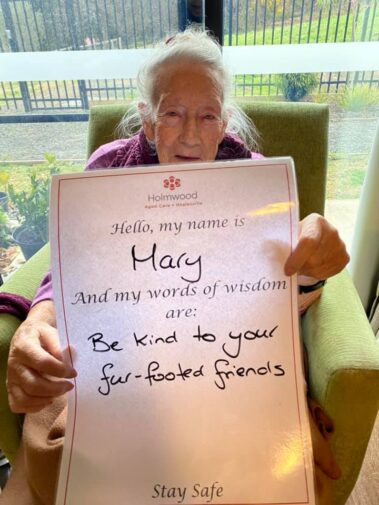 Holmwood
Aged Care • Heglesville
Hello, my name is
Mary
And my words of wisdom
are:
Be kind to your
fur-footed friends
Stay Safe